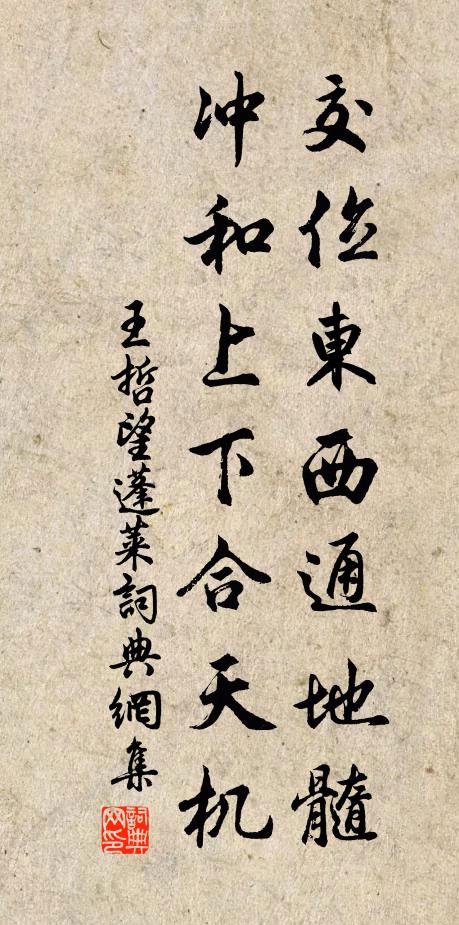 交位東西通地髓
冲和上下合天机
王哲望蓬萊詞典網集
詞典网印